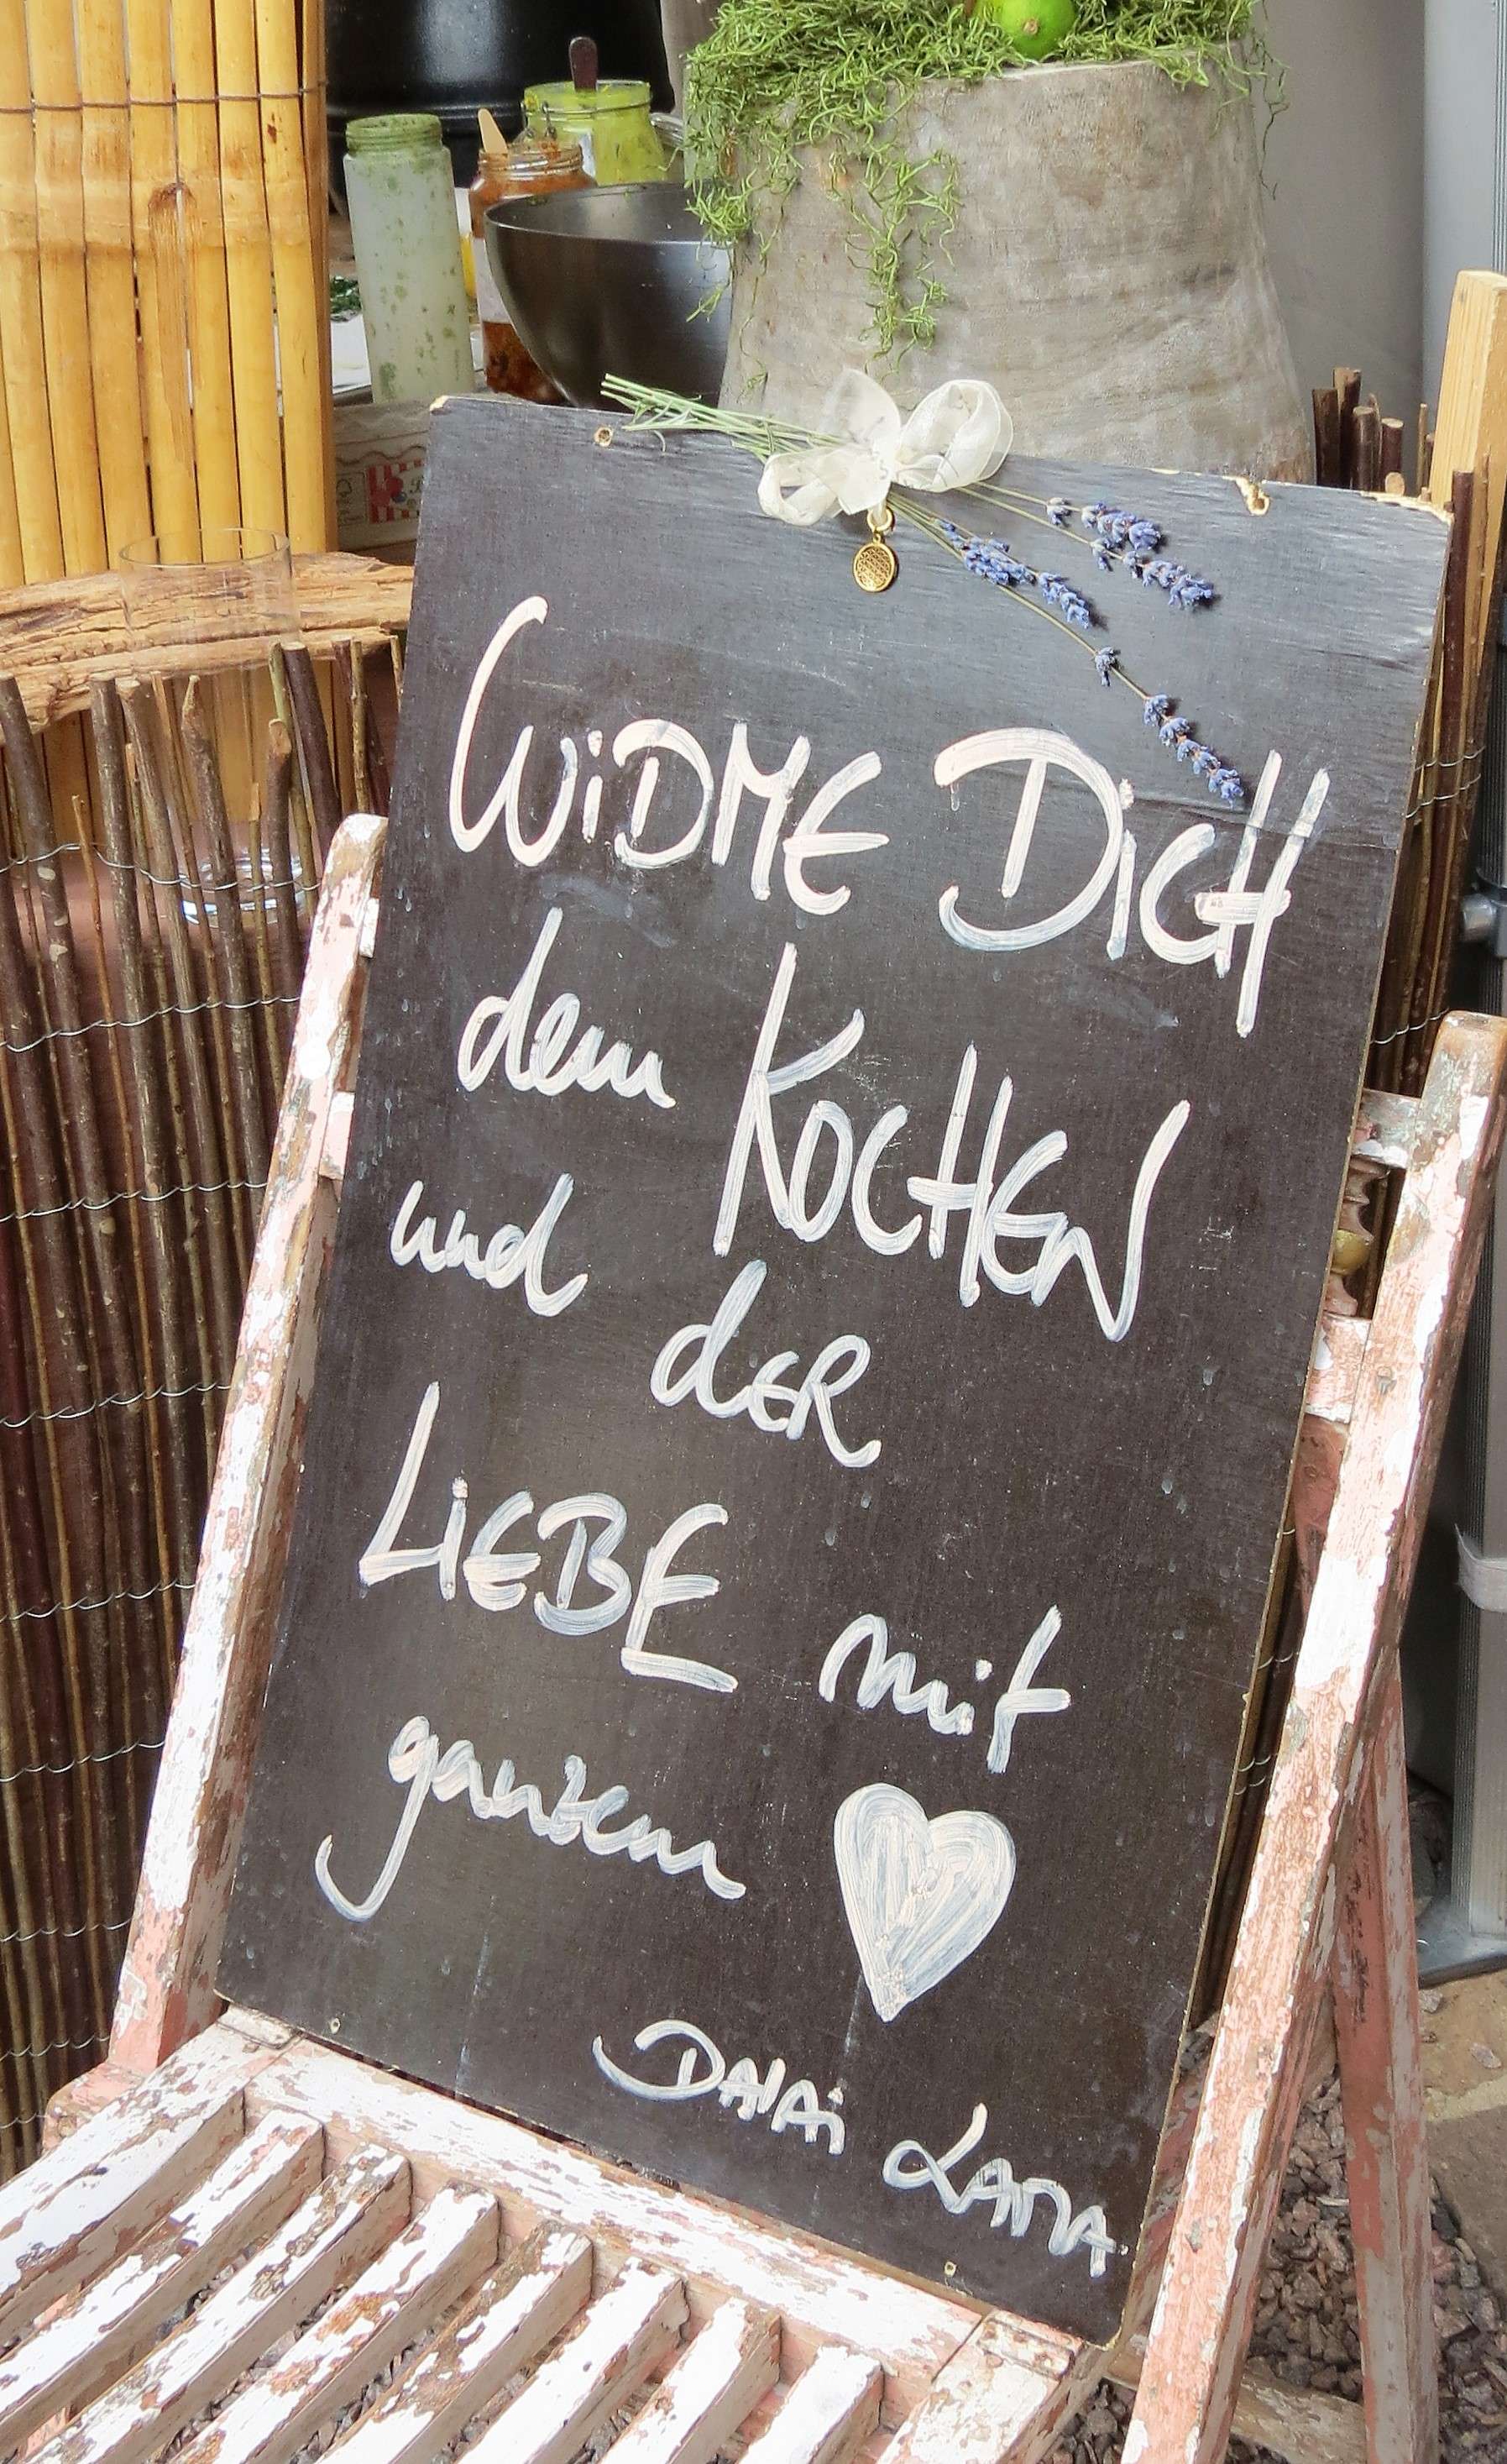 WiDME DiCH
dem KOCHEN
und dER
LiEBE mit
ganzem
DALAi LAMA